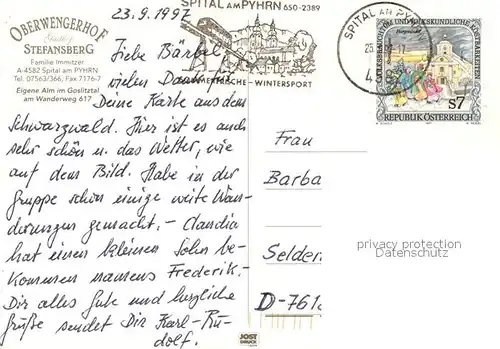 OBERWENGERHOF
STEFANSBERG
Familie Immitzer
A-4582 Spital am PYHRN
Tel. 07563/366, Fax 7176-7
Eigene Alm im Goslitztal
am Wanderweg 617
SPITAL AM PYHRN 650-2389
SOMMERFRISCHE - WINTERSPORT
SPITAL AM PY
REPUBLIK ÖSTERREICH
S7
23.9.1997
Liebe Bärbel,
vielen Dank für
Deine Karte aus dem
Schwarzwald. Hier ist es auch
sehr schön u. das Wetter, wie
auf dem Bild. Habe in der
Gruppe schon einige weite Wan-
derungen gemacht. - Claudia
hat einen kleinen Sohn be-
kommen namens Frederik. -
Dir alles Gute und herzliche
Grüße sendet Dir Karl-Ru-
dolf.
Frau
Barba
Selder
D-761
privacy protection
Datenschutz
JOST
DRUCK